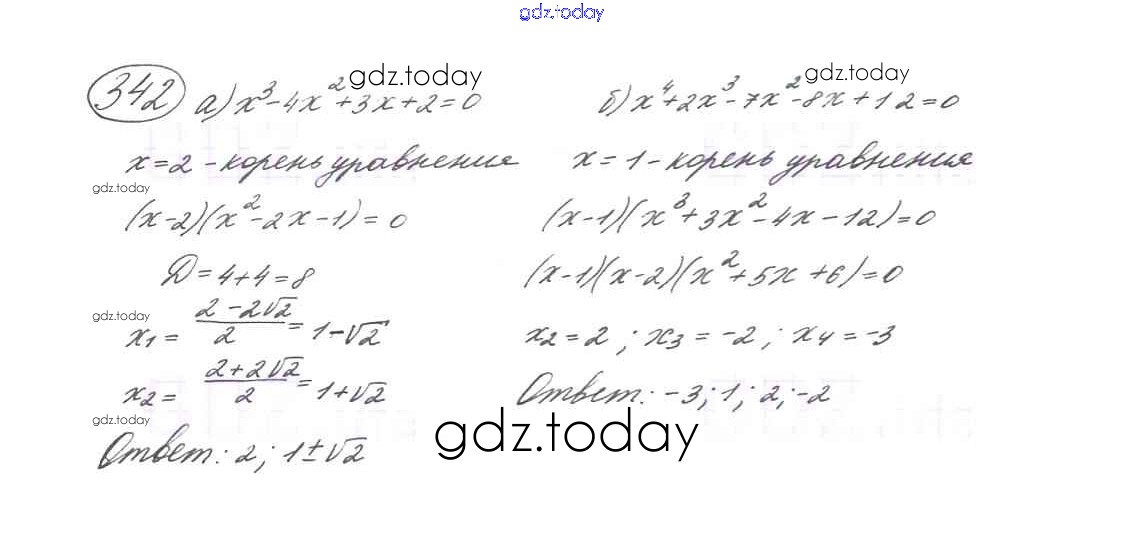 gdz.today
342 а) x³-4x²+3x+2=0 gdz.today
x=2 - корень уравнения
gdz.today
(x-2)(x²-2x-1)=0
D=4+4=8
gdz.today
x₁= (2-2√2)/2 = 1-√2
x₂= (2+2√2)/2 = 1+√2
gdz.today
Ответ: 2; 1±√2
б) x⁴+2x³-7x²-8x+12=0 gdz.today
x=1 - корень уравнения
(x-1)(x³+3x²-4x-12)=0
(x-1)(x-2)(x²+5x+6)=0
x₂=2; x₃=-2; x₄=-3
Ответ: -3; 1; 2; -2
gdz.today